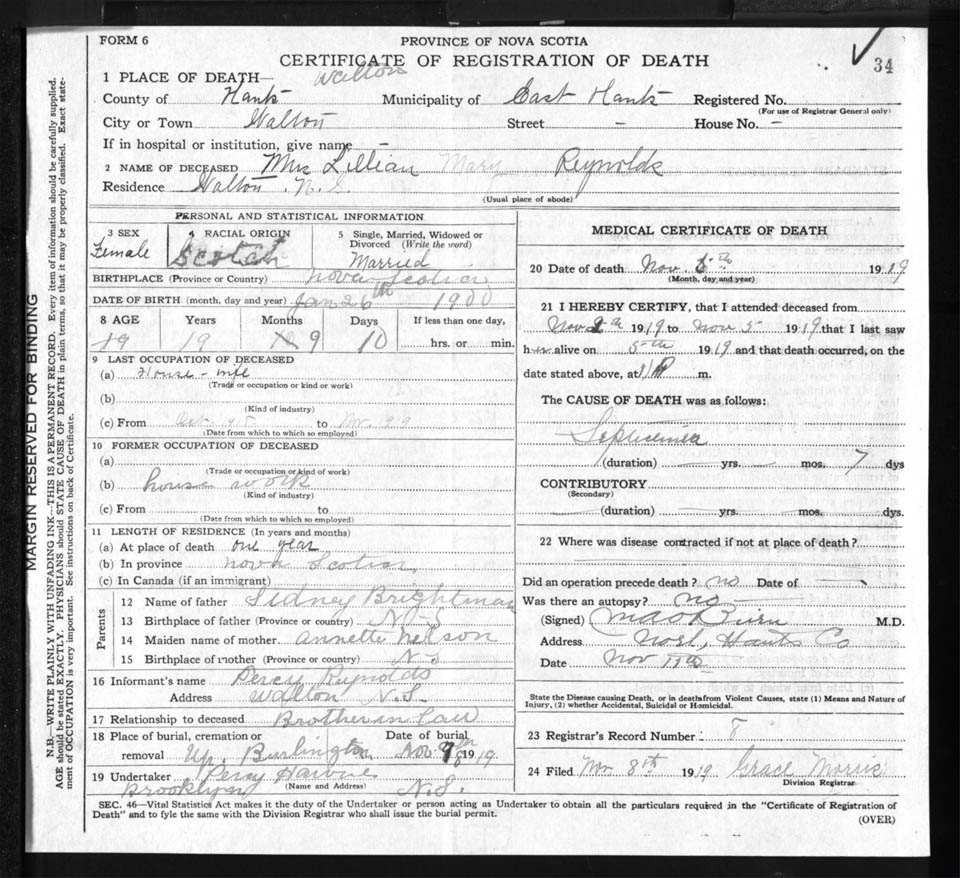 FORM 6
PROVINCE OF NOVA SCOTIA
34
CERTIFICATE OF REGISTRATION OF DEATH
1 PLACE OF DEATH— Walton
County of Hants Municipality of East Hants Registered No.
(For use of Registrar General only)
City or Town Walton Street — House No. —
If in hospital or institution, give name —
2 NAME OF DECEASED Mrs Lillian Mary Reynolds
Residence Walton, N.S.
(Usual place of abode)
MARGIN RESERVED FOR BINDING
N.B.—WRITE PLAINLY WITH UNFADING INK—THIS IS A PERMANENT RECORD. Every item of information should be carefully supplied.
AGE should be stated EXACTLY. PHYSICIANS should STATE CAUSE OF DEATH in plain terms, so that it may be properly classified. Exact state-
ment of OCCUPATION is very important. See instructions on back of Certificate.
PERSONAL AND STATISTICAL INFORMATION
3 SEX
Female
4 RACIAL ORIGIN
Scotch
5 Single, Married, Widowed or
Divorced (Write the word)
Married
BIRTHPLACE (Province or Country) Nova Scotia
DATE OF BIRTH (month, day and year) Jan 26th 1900
8 AGE Years Months Days If less than one day,
19 19 9 10 hrs. or min.
9 LAST OCCUPATION OF DECEASED
(a) House-wife
(Trade or occupation or kind or work)
(b)
(Kind of industry)
(c) From Oct. to Nov. 1919
(Date from which to which so employed)
10 FORMER OCCUPATION OF DECEASED
(a)
(Trade or occupation or kind of work)
(b) house work
(Kind of industry)
(c) From to
(Date from which to which so employed)
11 LENGTH OF RESIDENCE (In years and months)
(a) At place of death one year
(b) In province Nova Scotia
(c) In Canada (if an immigrant)
Parents
12 Name of father Sidney Brightman
13 Birthplace of father (Province or country) N-S
14 Maiden name of mother Annette Nelson
15 Birthplace of mother (Province or country) N-S
16 Informant's name Percy Reynolds
Address Walton N.S.
17 Relationship to deceased Brother in law
18 Place of burial, cremation or Date of burial
removal Up. Burlington Nov 1919
19 Undertaker Percy
(Name and Address)
Brooklyn N.S.
MEDICAL CERTIFICATE OF DEATH
20 Date of death Nov. 5th 1919
(Month, day and year)
21 I HEREBY CERTIFY, that I attended deceased from
Nov 1919 to Nov 5 1919 that I last saw
her alive on 5th 1919 and that death occurred, on the
date stated above, at m.
The CAUSE OF DEATH was as follows:
Septicemia
(duration) — yrs. — mos. 7 dys
CONTRIBUTORY
(Secondary)
(duration) — yrs. — mos. dys.
22 Where was disease contracted if not at place of death?
Did an operation precede death? no Date of —
Was there an autopsy? no
(Signed) M.D.
Address Noel, Hants Co
Date Nov 11th
State the Disease causing Death, or in deaths from Violent Causes, state (1) Means and Nature of
Injury, (2) whether Accidental, Suicidal or Homicidal.
23 Registrar's Record Number 8
24 Filed Nov. 8th 1919 Grace
Division Registrar
SEC. 46—Vital Statistics Act makes it the duty of the Undertaker or person acting as Undertaker to obtain all the particulars required in the "Certificate of Registration of
Death" and to fyle the same with the Division Registrar who shall issue the burial permit.
(OVER)